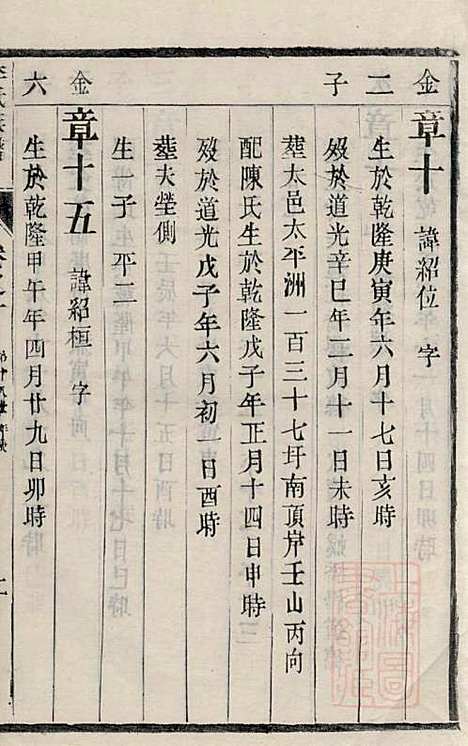 金
二
子
金
六
章十 諱紹位 字
生於乾隆庚寅年六月十七日亥時
歿於道光辛巳年二月十一日未時
塟太邑太平洲一百三十七圩南頂岸壬山丙向
配陳氏生於乾隆戊子年正月十四日申時
歿於道光戊子年六月初一日酉時
塟夫塋側
生一子 平二
章十五 諱紹桓 字
生於乾隆甲午年四月廿九日卯時